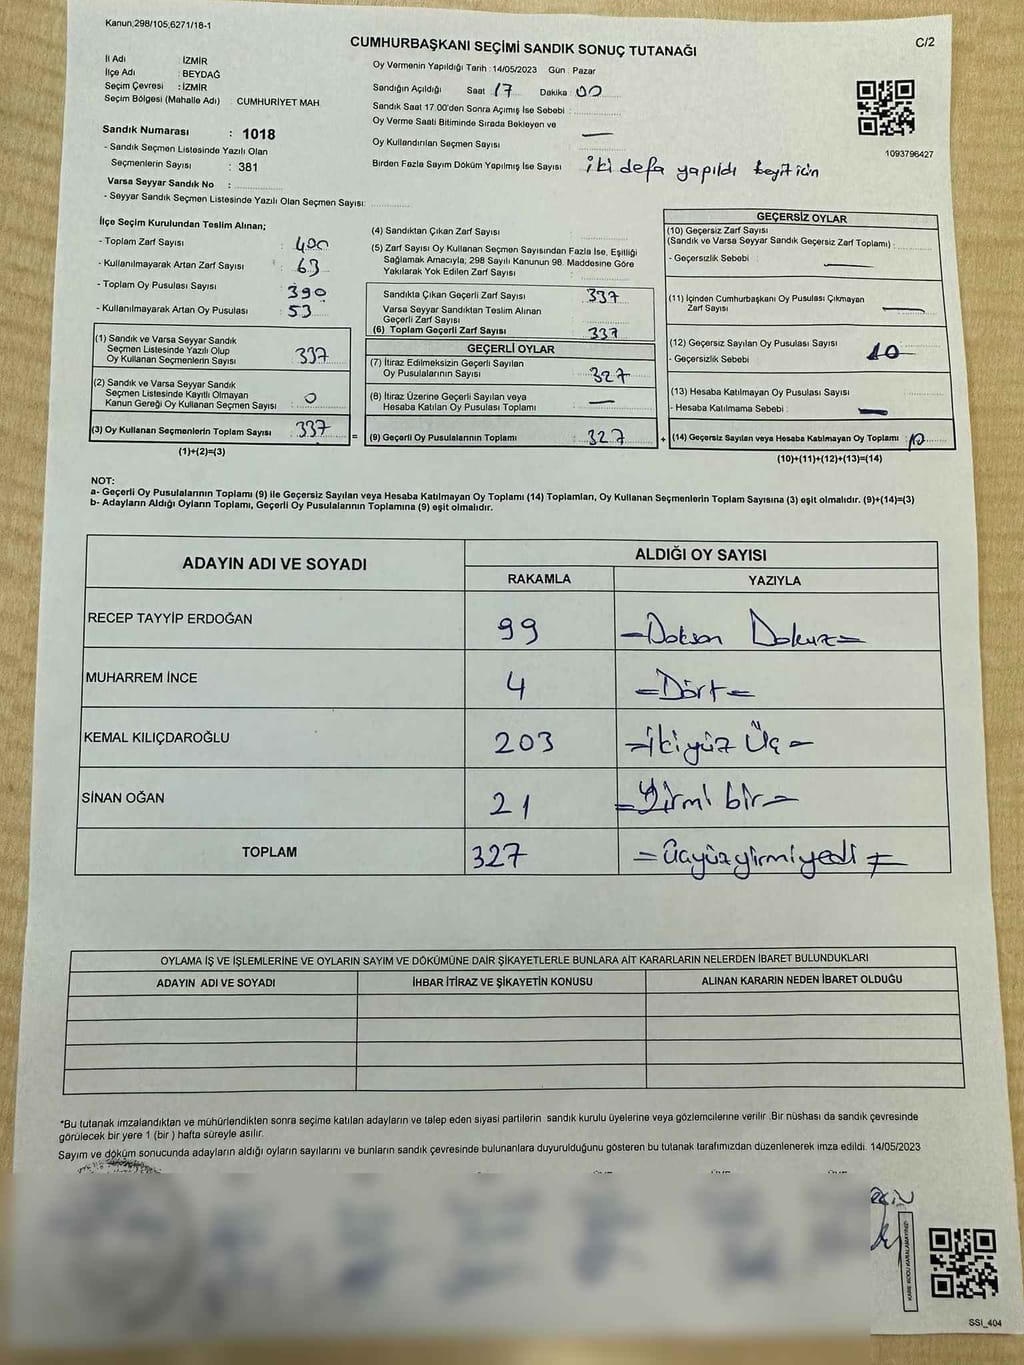 Kanun,298/105,6271/18-1
CUMHURBAŞKANI SEÇİMİ SANDIK SONUÇ TUTANAĞI
C/2
İl Adı : İZMİR
İlçe Adı : BEYDAĞ
Seçim Çevresi : İZMİR
Seçim Bölgesi (Mahalle Adı) : CUMHURİYET MAH.
Oy Vermenin Yapıldığı Tarih : 14/05/2023 Gün : Pazar
Sandığın Açıldığı Saat 17 Dakika : 00
Sandık Saat 17.00'den Sonra Açılmış İse Sebebi :
Oy Verme Saati Bitiminde Sırada Bekleyen ve
Oy Kullandırılan Seçmen Sayısı
Birden Fazla Sayım Döküm Yapılmış İse Sayısı iki defa yapıldı teyit için
1093796427
Sandık Numarası : 1018
- Sandık Seçmen Listesinde Yazılı Olan
Seçmenlerin Sayısı : 381
Varsa Seyyar Sandık No :
- Seyyar Sandık Seçmen Listesinde Yazılı Olan Seçmen Sayısı:
İlçe Seçim Kurulundan Teslim Alınan;
- Toplam Zarf Sayısı : 400
- Kullanılmayarak Artan Zarf Sayısı : 63
- Toplam Oy Pusulası Sayısı : 390
- Kullanılmayarak Artan Oy Pusulası : 53
(1) Sandık ve Varsa Seyyar Sandık
Seçmen Listesinde Yazılı Olup
Oy Kullanan Seçmenlerin Sayısı : 337
(2) Sandık ve Varsa Seyyar Sandık
Seçmen Listesinde Kayıtlı Olmayan
Kanun Gereği Oy Kullanan Seçmen Sayısı : 0
(3) Oy Kullanan Seçmenlerin Toplam Sayısı : 337
(1)+(2)=(3)
=
(4) Sandıktan Çıkan Zarf Sayısı
(5) Zarf Sayısı Oy Kullanan Seçmen Sayısından Fazla İse, Eşitliği
Sağlamak Amacıyla; 298 Sayılı Kanunun 98. Maddesine Göre
Yakılarak Yok Edilen Zarf Sayısı :
Sandıkta Çıkan Geçerli Zarf Sayısı : 337
Varsa Seyyar Sandıktan Teslim Alınan
Geçerli Zarf Sayısı
(6) Toplam Geçerli Zarf Sayısı : 337
GEÇERLİ OYLAR
(7) İtiraz Edilmeksizin Geçerli Sayılan
Oy Pusulalarının Sayısı : 327
(8) İtiraz Üzerine Geçerli Sayılan veya
Hesaba Katılan Oy Pusulası Toplamı : —
(9) Geçerli Oy Pusulalarının Toplamı : 327
+
GEÇERSİZ OYLAR
(10) Geçersiz Zarf Sayısı
(Sandık ve Varsa Seyyar Sandık Geçersiz Zarf Toplamı) :
- Geçersizlik Sebebi : —
(11) İçinden Cumhurbaşkanı Oy Pusulası Çıkmayan
Zarf Sayısı —
(12) Geçersiz Sayılan Oy Pusulası Sayısı : 10
- Geçersizlik Sebebi :
(13) Hesaba Katılmayan Oy Pusulası Sayısı :
- Hesaba Katılmama Sebebi : —
(14) Geçersiz Sayılan veya Hesaba Katılmayan Oy Toplamı : 10
(10)+(11)+(12)+(13)=(14)
NOT:
a- Geçerli Oy Pusulalarının Toplamı (9) ile Geçersiz Sayılan veya Hesaba Katılmayan Oy Toplamı (14) Toplamları, Oy Kullanan Seçmenlerin Toplam Sayısına (3) eşit olmalıdır. (9)+(14)=(3)
b- Adayların Aldığı Oyların Toplamı, Geçerli Oy Pusulalarının Toplamına (9) eşit olmalıdır.
ADAYIN ADI VE SOYADI ALDIĞI OY SAYISI
RAKAMLA YAZIYLA
RECEP TAYYİP ERDOĞAN 99 =Doksan Dokuz=
MUHARREM İNCE 4 =Dört=
KEMAL KILIÇDAROĞLU 203 =İkiyüz Üç=
SİNAN OĞAN 21 =Yirmi bir=
TOPLAM 327 =Üçyüzyirmiyedi=
OYLAMA İŞ VE İŞLEMLERİNE VE OYLARIN SAYIM VE DÖKÜMÜNE DAİR ŞİKAYETLERLE BUNLARA AİT KARARLARIN NELERDEN İBARET BULUNDUKLARI
ADAYIN ADI VE SOYADI İHBAR İTİRAZ VE ŞİKAYETİN KONUSU ALINAN KARARIN NEDEN İBARET OLDUĞU
*Bu tutanak imzalandıktan ve mühürlendikten sonra seçime katılan adayların ve talep eden siyasi partilerin sandık kurulu üyelerine veya gözlemcilerine verilir. Bir nüshası da sandık çevresinde
görülecek bir yere 1 (bir) hafta süreyle asılır.
Sayım ve döküm sonucunda adayların aldığı oyların sayılarını ve bunların sandık çevresinde bulunanlara duyurulduğunu gösteren bu tutanak tarafımızdan düzenlenerek imza edildi. 14/05/2023
KARE KODU KARALAMAYINIZ!
SSİ_404